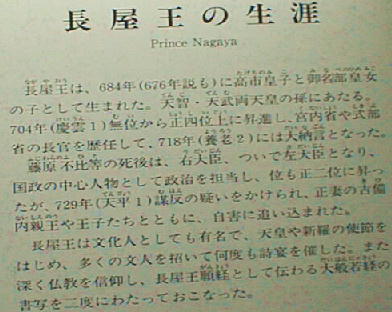 長屋王の生涯
Prince Nagaya
長屋王は、684年(676年説も)に高市皇子と御名部皇女
の子として生まれた。天智・天武両天皇の孫にあたる。
704年(慶雲1)無位から正四位上に昇進し、宮内省や式部
省の長官を歴任して、718年(養老2)には大納言となった。
藤原不比等の死後は、右大臣、ついで左大臣となり、
国政の中心人物として政治を担当し、位も正二位に昇っ
たが、729年(天平1)謀反の疑いをかけられ、正妻の吉備
内親王や王子たちとともに、自害に追い込まれた。
長屋王は文化人としても有名で、天皇や新羅の使節を
はじめ、多くの文人を招いて何度も詩宴を催した。また
深く仏教を信仰し、長屋王願経として伝わる大般若経の
書写を二度にわたっておこなった。